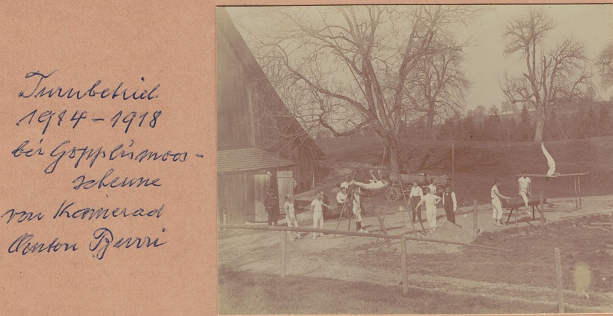 Turnbetrieb
1914-1918
bei Gopplismoos-
scheune
von Kamerad
Anton Burri